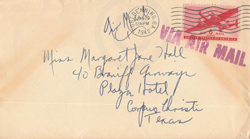 Air Mail
1942
VIA AIR MAIL
Miss Margaret Jane Hall
40 Braniff Airways
Plaza Hotel
Corpus Christi
Texas